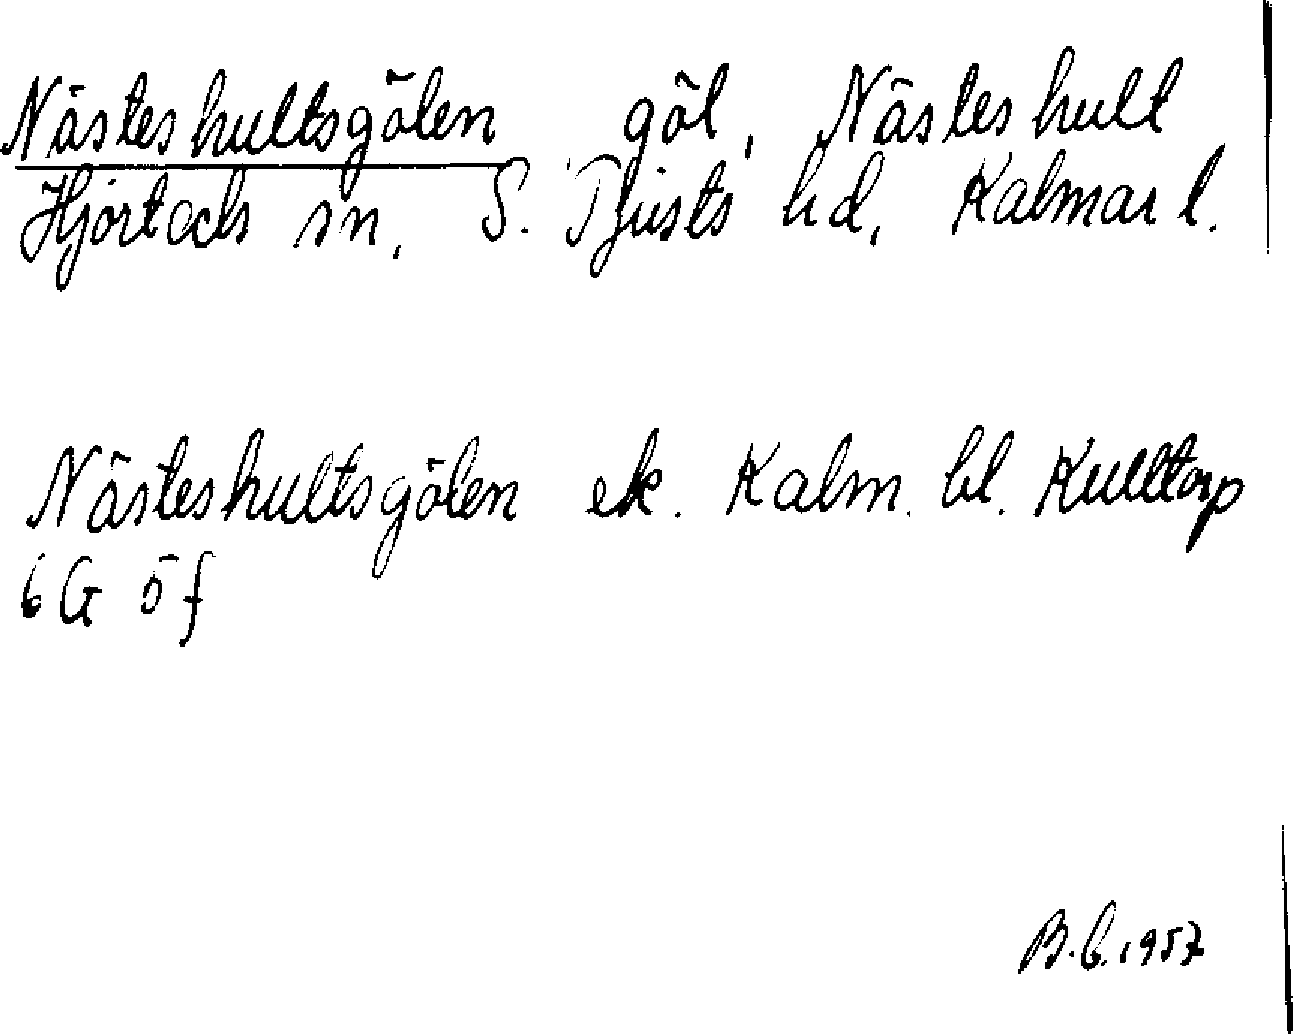 Nästeshultsgölen göl, Nästeshult
Hjorteds sn, S. Tjusts hd, Kalmar l.
Nästeshultsgölen ek. Kalm. bl. Kulltorp
6G 5f
B.C. 1957